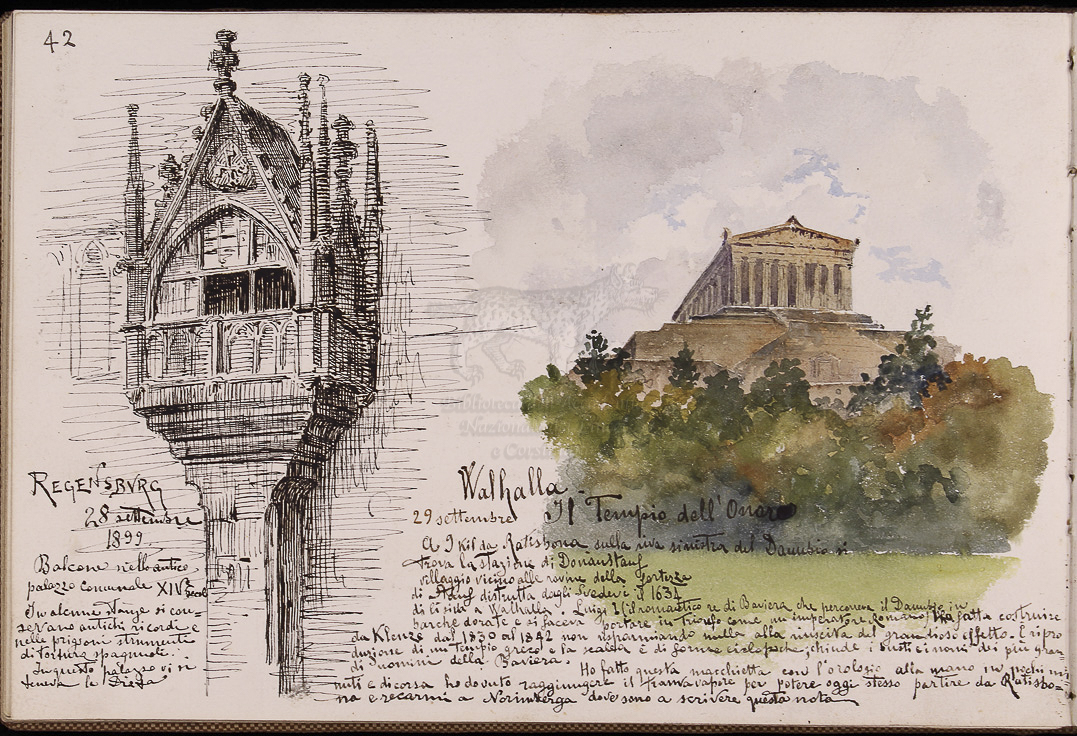 42
REGENSBVRG
28 settembre
1899
Balcone nello antico
palazzo comunale XIV° secol
In alcune stanze si con-
servano antichi ricordi e
nelle prigioni strumenti
di tortura spagnuoli.
In questo palazzo vi si
teneva la Dieta
Walhalla -
29 settembre Il Tempio dell' Onore
A 9 Kil da Ratisbona sulla riva sinistra del Danubio si
trova la stazione di Donaustauf
villaggio vicino alle rovine della fortezza
di Stauf distrutta dagli Svedesi il 1634
di lì sida a Walhalla. Luigi I (il romantico re di Baviera che percorreva il Danubio in
barche dorate e si faceva portare in trionfo come un imperatore romano) l'ha fatta costruire
da Klenze dal 1830 al 1842 non risparmiando nulla alla riuscita del grandioso effetto. È ripro
duzione di un tempio greco e la scalea è di forme ciclopiche; chiude i busti e i nomi dei più gran-
di uomini della Baviera. Ho fatto questa macchietta con l'orologio alla mano in pochi mi-
nuti e di corsa ho dovuto raggiungere il tramvavapore per potere oggi stesso partire da Ratisbo-
na e recarmi a Norimberga dove sono a scrivere questa nota
Biblioteca
Nazionale